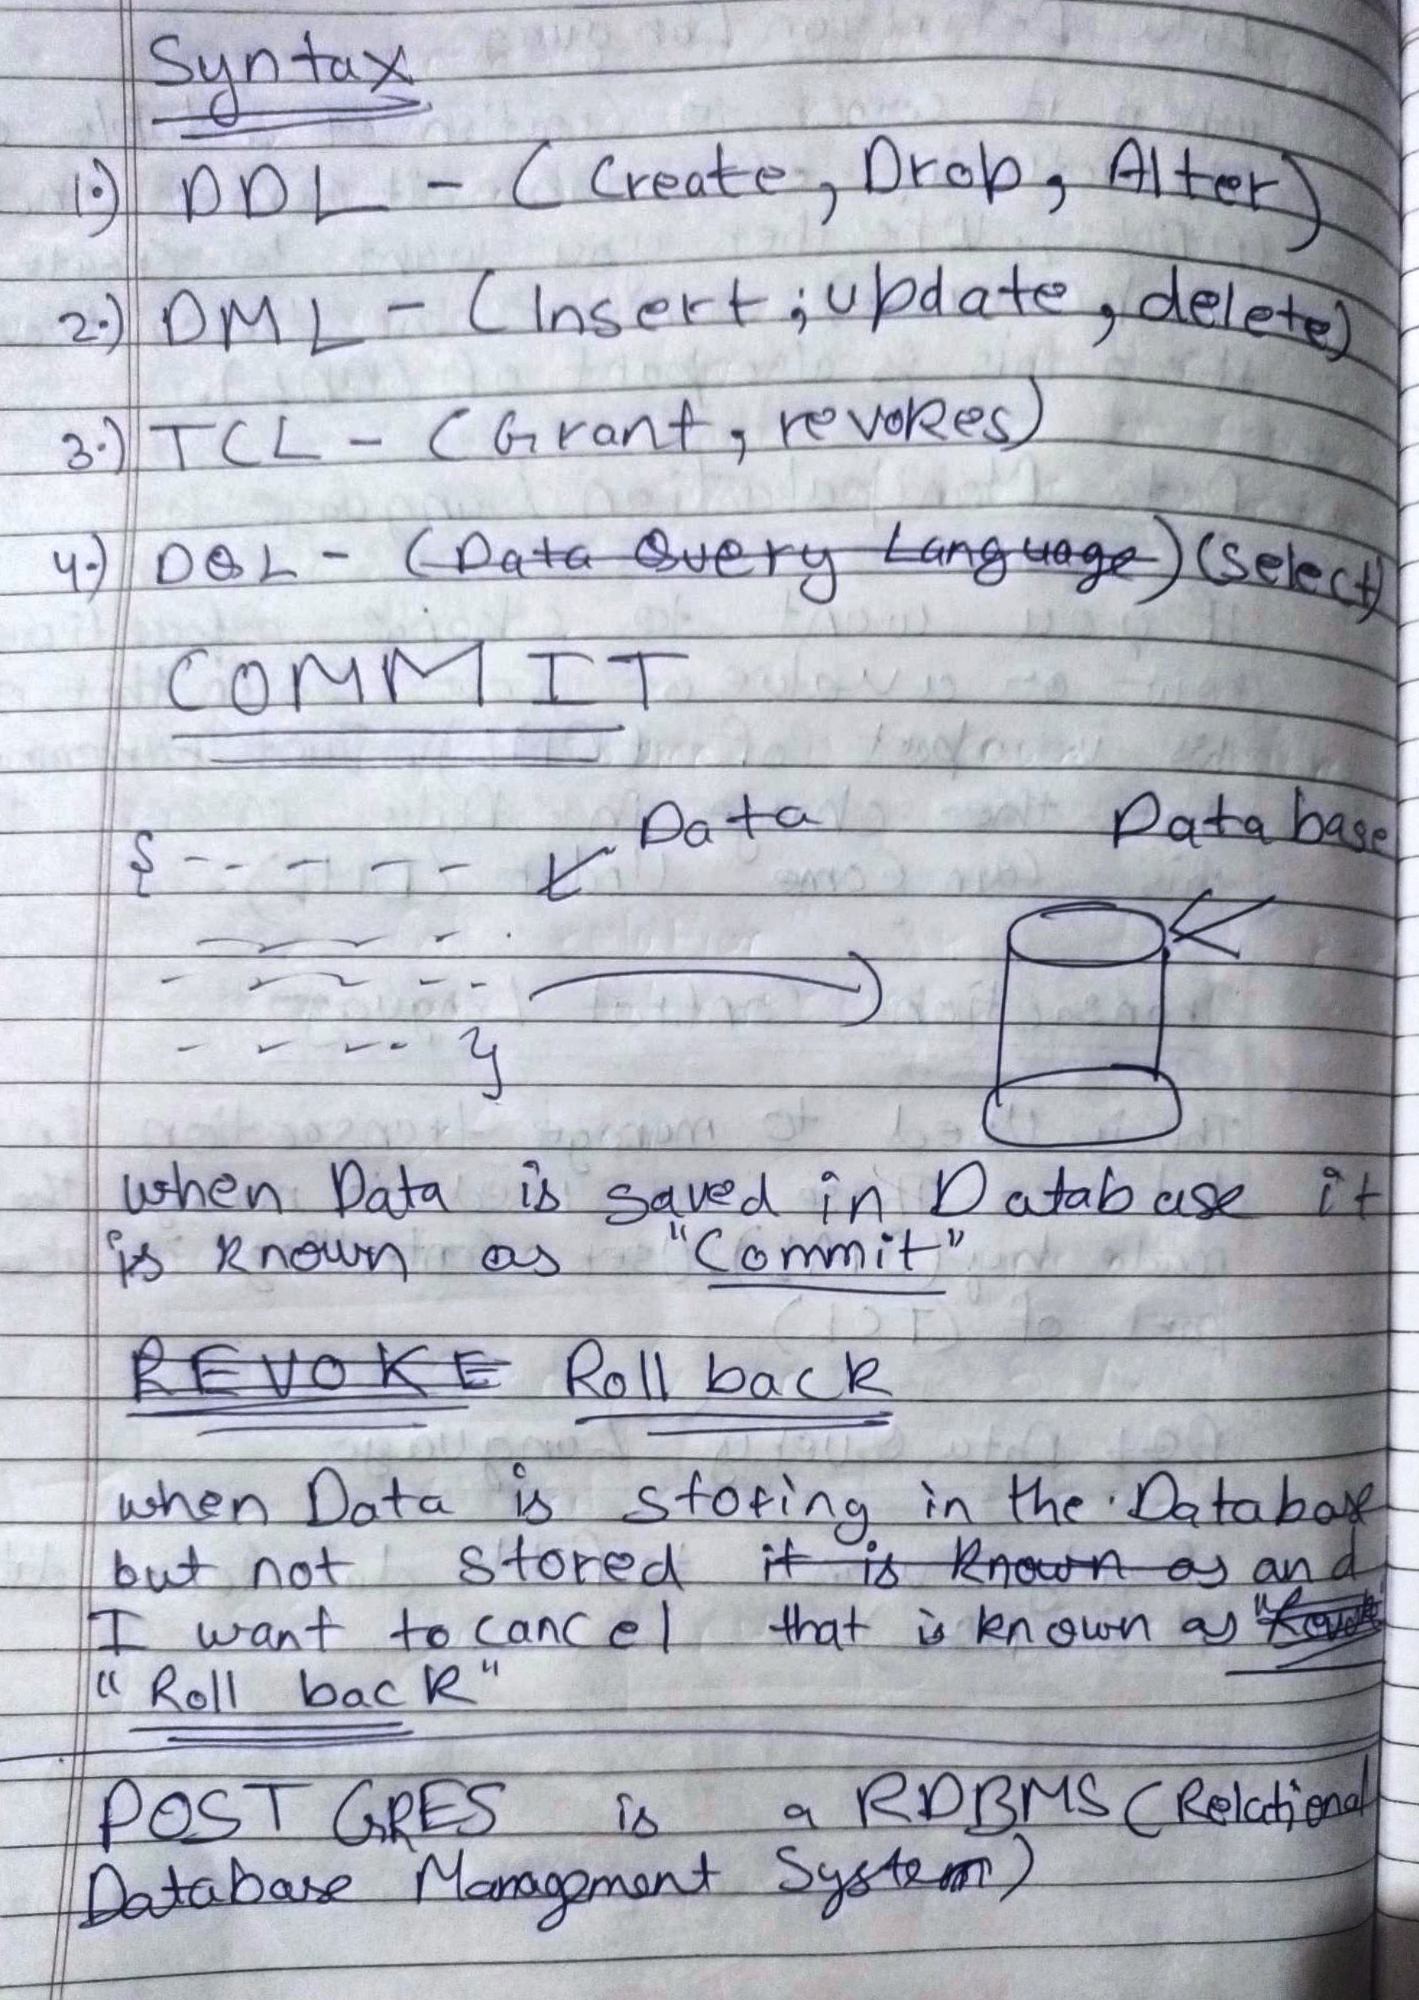 Syntax
1.) DDL - (Create, Drop, Alter)
2.) DML - (Insert; update, delete)
3.) TCL - (Grant, revokes)
4.) DQL - (Data Query Language) (Select)
COMMIT
Data
Database
{ - - - - -
}
when Data is saved in Database it
is known as "Commit"
REVOKE Roll back
when Data is storing in the Database
but not stored it is known as and
I want to cancel that is known as
"Roll back"
POSTGRES is a RDBMS (Relational
Database Management System)